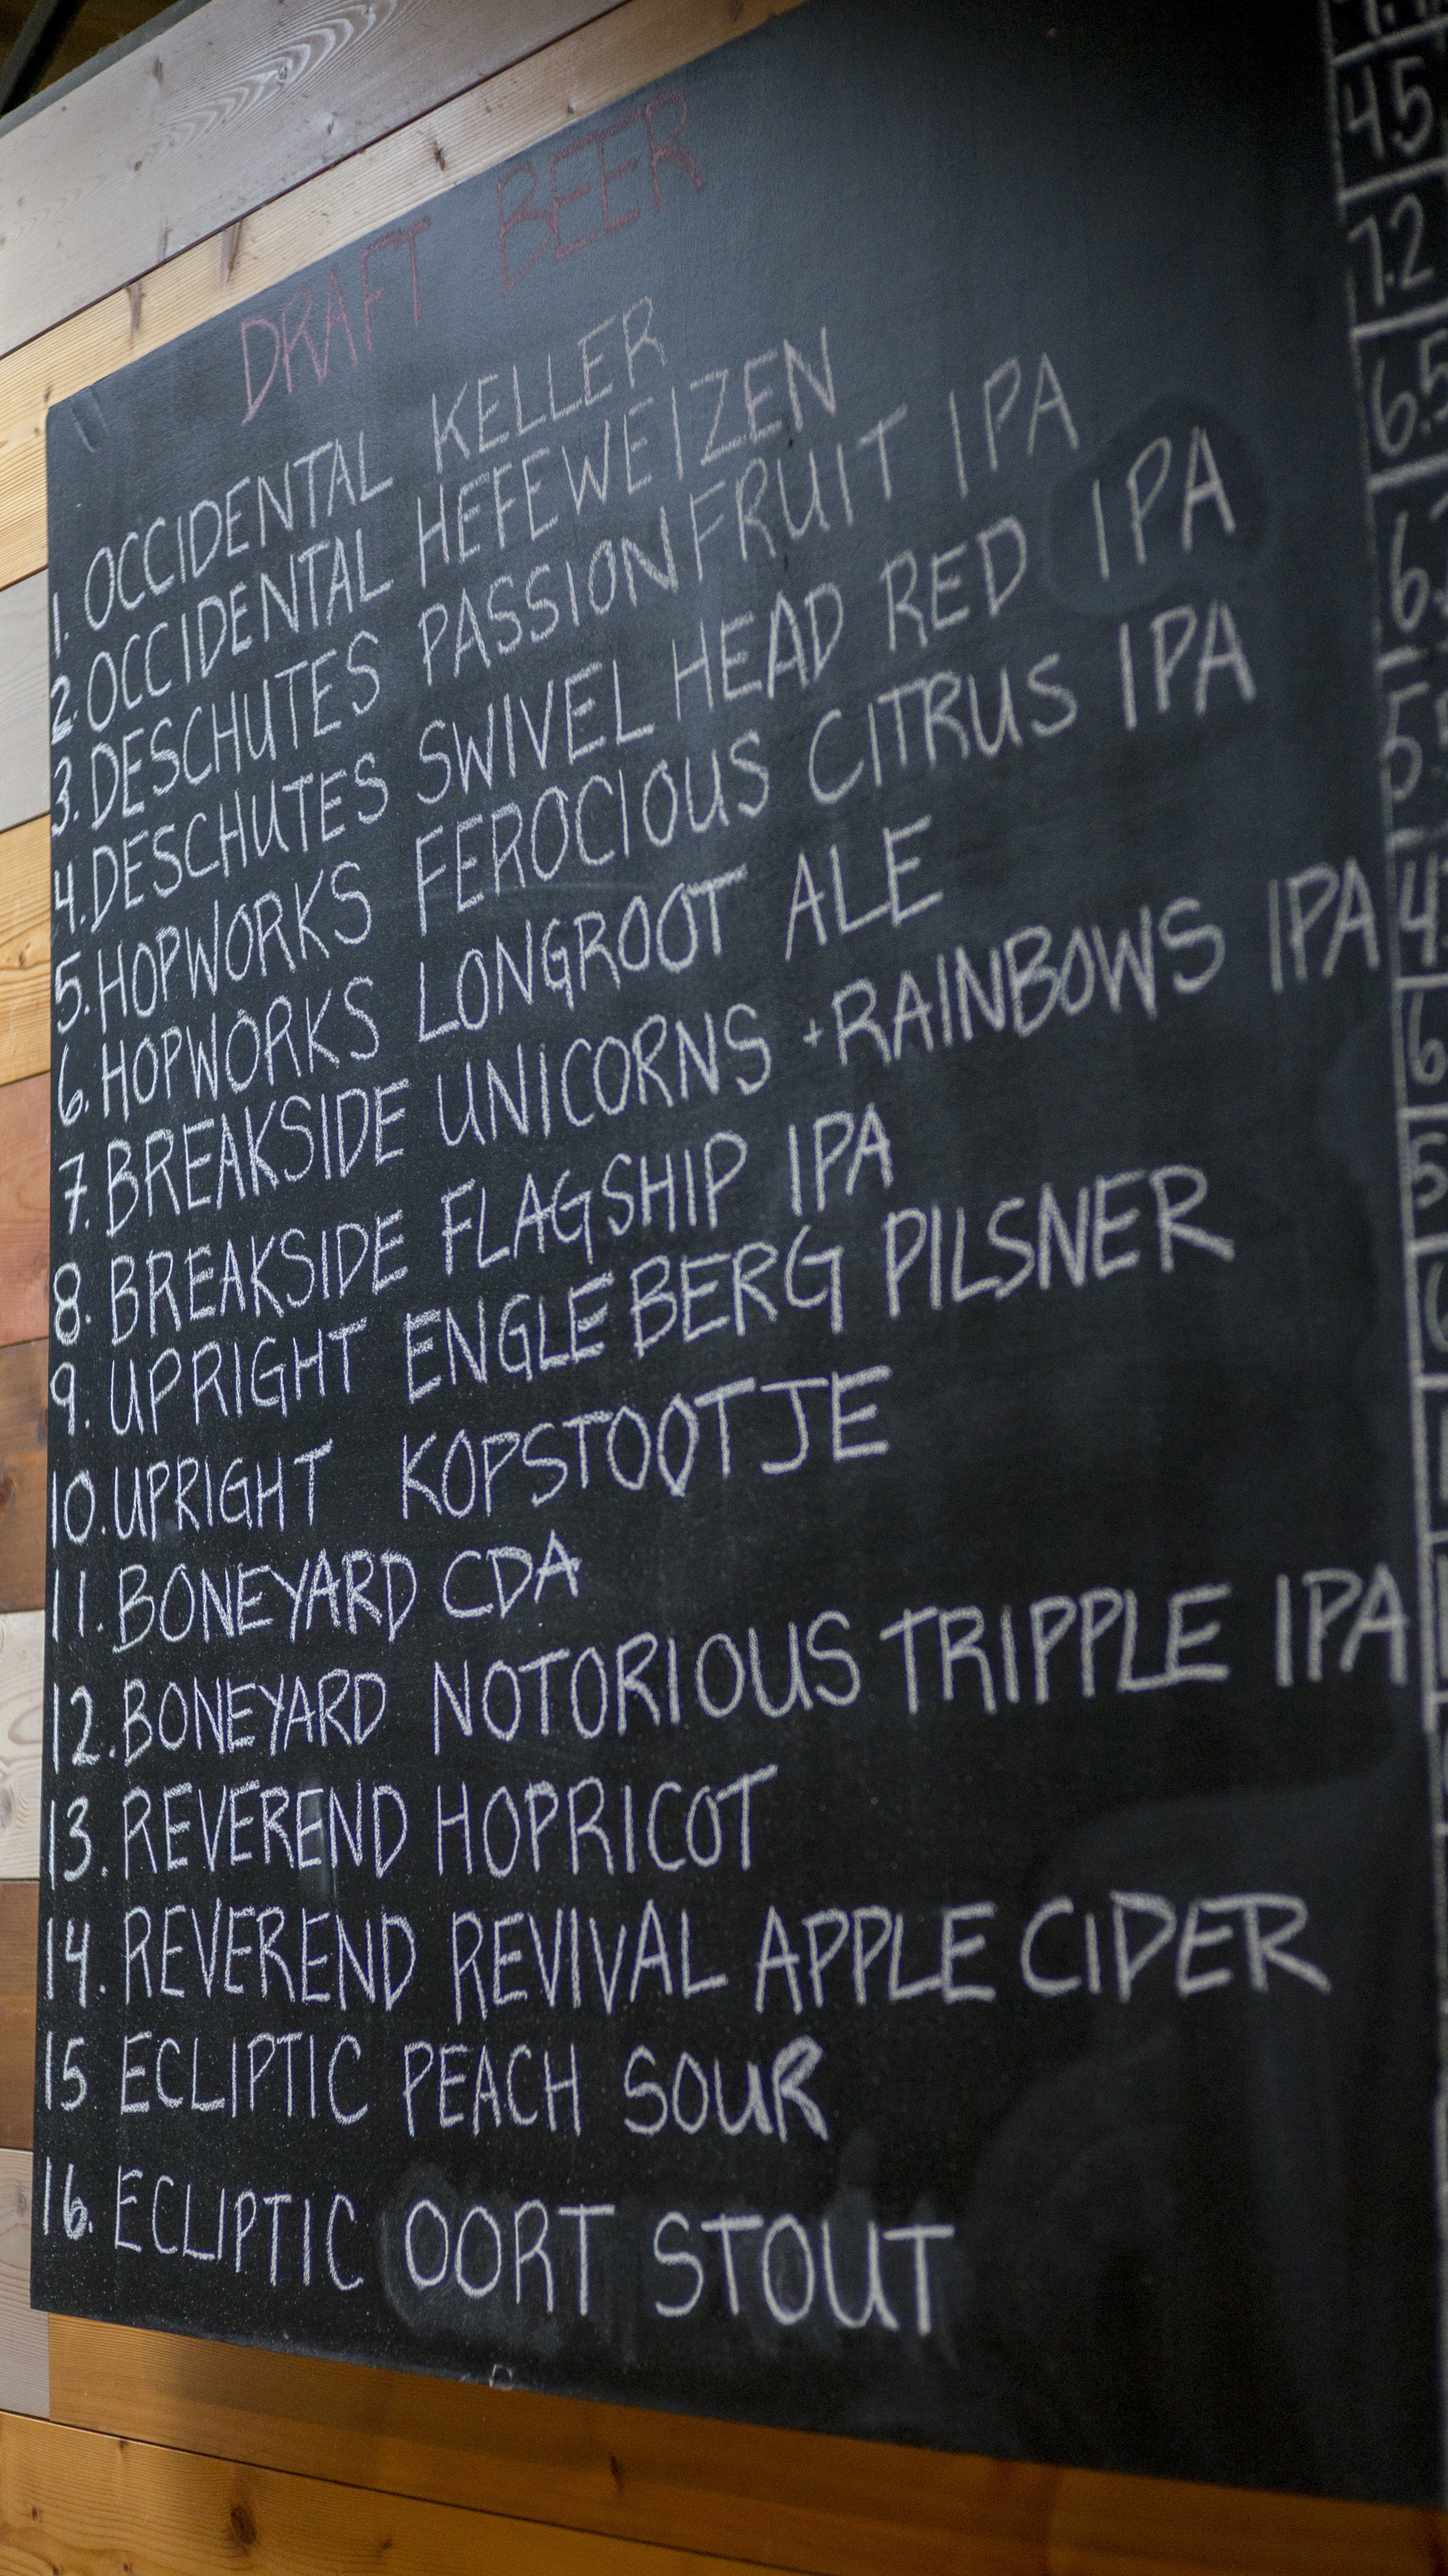 DRAFT BEER
1. OCCIDENTAL KELLER
2. OCCIDENTAL HEFEWEIZEN
3. DESCHUTES PASSIONFRUIT IPA
4. DESCHUTES SWIVEL HEAD RED IPA
5. HOPWORKS FEROCIOUS CITRUS IPA
6. HOPWORKS LONGROOT ALE
7. BREAKSIDE UNICORNS + RAINBOWS IPA
8. BREAKSIDE FLAGSHIP IPA
9. UPRIGHT ENGLEBERG PILSNER
10. UPRIGHT KOPSTOOTJE
11. BONEYARD CDA
12. BONEYARD NOTORIOUS TRIPPLE IPA
13. REVEREND HOPRICOT
14. REVEREND REVIVAL APPLE CIDER
15 ECLIPTIC PEACH SOUR
16. ECLIPTIC OORT STOUT
4.5
7.2
6.5